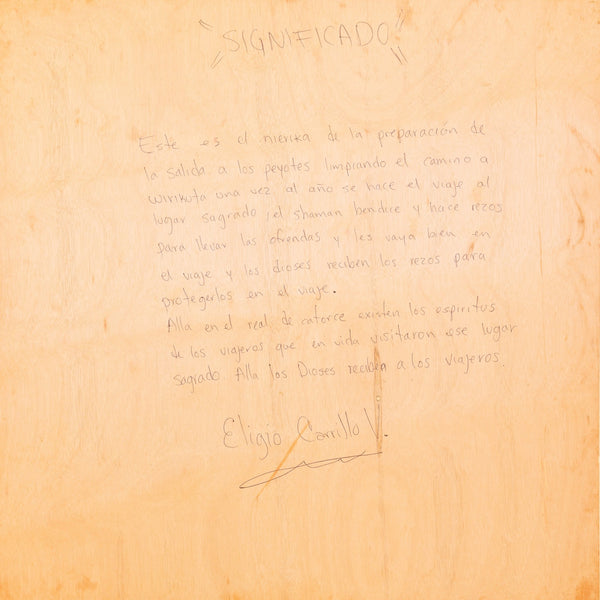 "SIGNIFICADO"
Este es el nierika de la preparación de
la salida a los peyotes limpiando el camino a
wirikuta una vez al año se hace el viaje al
lugar sagrado, el shaman bendice y hace rezos
para llevar las ofrendas y les vaya bien en
el viaje y los dioses reciben los rezos para
protegerlos en el viaje.
Alla en el real de catorce existen los espiritos
de los viajeros que en vida visitaron ese lugar
sagrado. Alla los Dioses reciben a los viajeros.
Eligio Carrillo V.